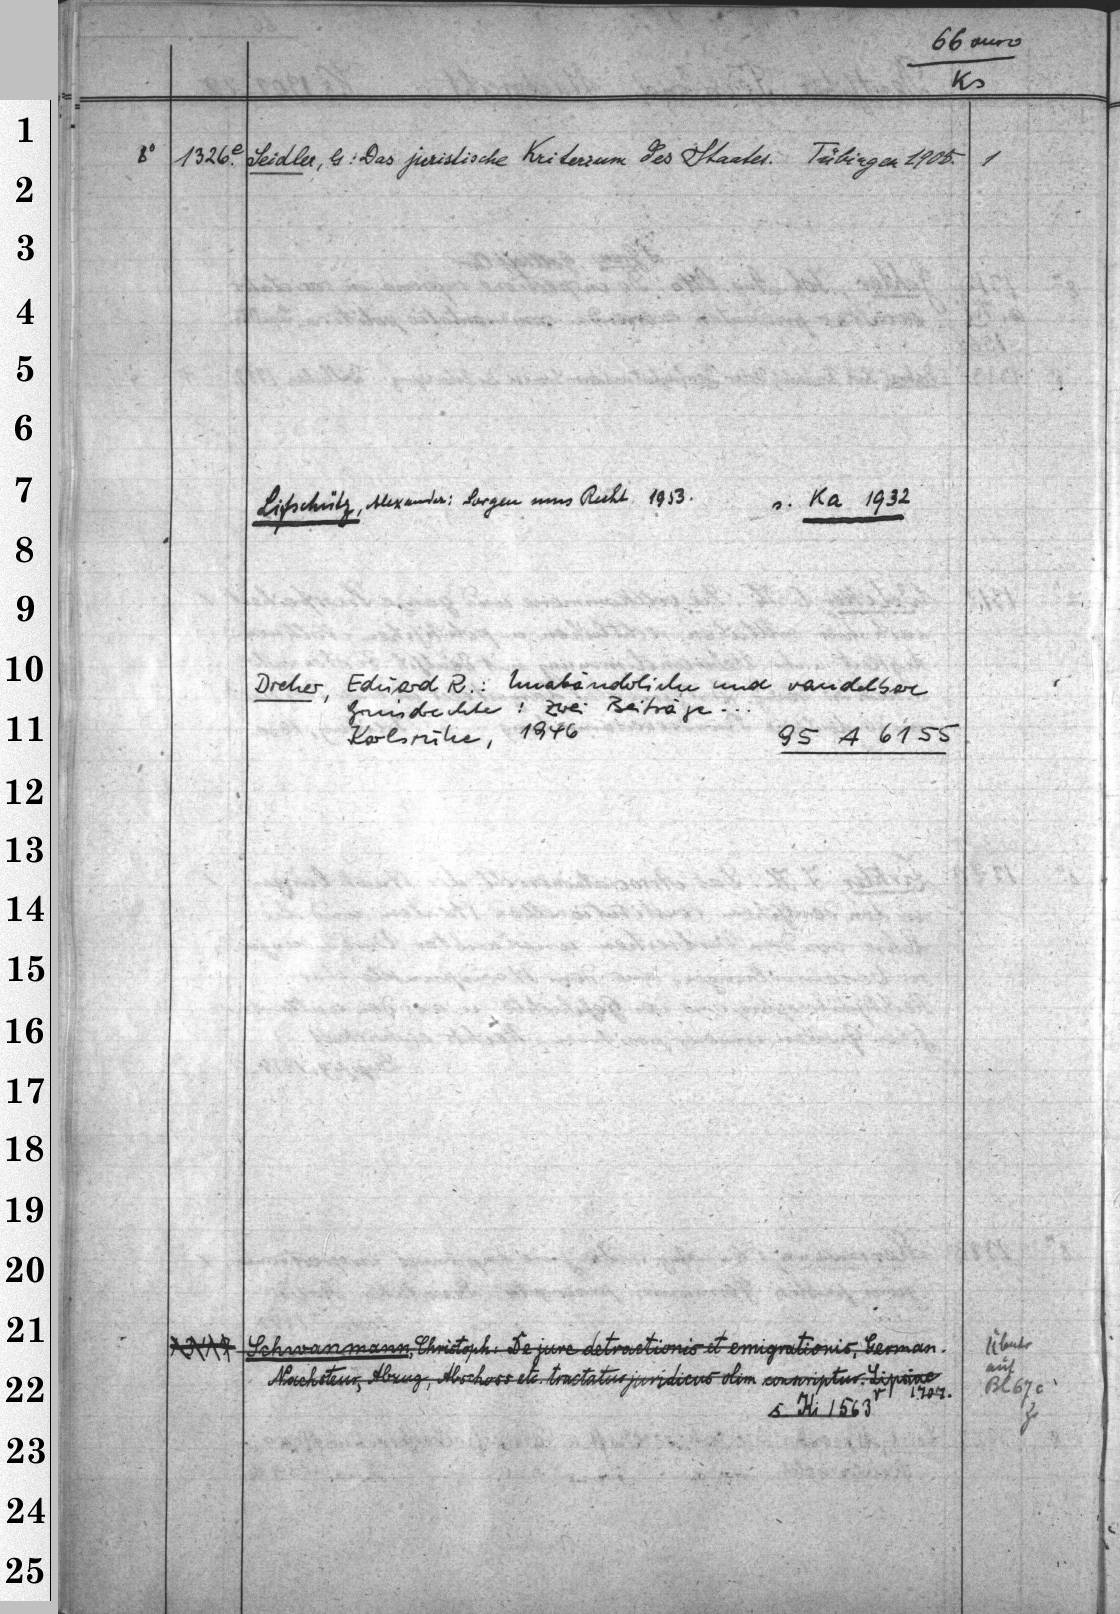 66
Ks
1
8° 1326.e Seidler, G.: Das juristische Kriterium des Staates. Tübingen 1905. 1
2
3
4
5
6
7
Lifschütz, Alexander: Sorgen ums Recht 1953. s. Ka 1932
8
9
10
Dreher, Eduard R.: Unabänderliche und wandelbare
Grundrechte : zwei Beiträge...
11
Karlsruhe, 1946 95 A 6155
12
13
14
15
16
17
18
19
20
21
Schwanmann, Christoph: De jure detractionis et emigrationis, German.
auf
22
Nachsteur, Abzug, Abschoss etc. tractatus juridicus olim conscriptus. Lipsiae 1707.
Bl 67c
s Ki 1563 r
23
24
25